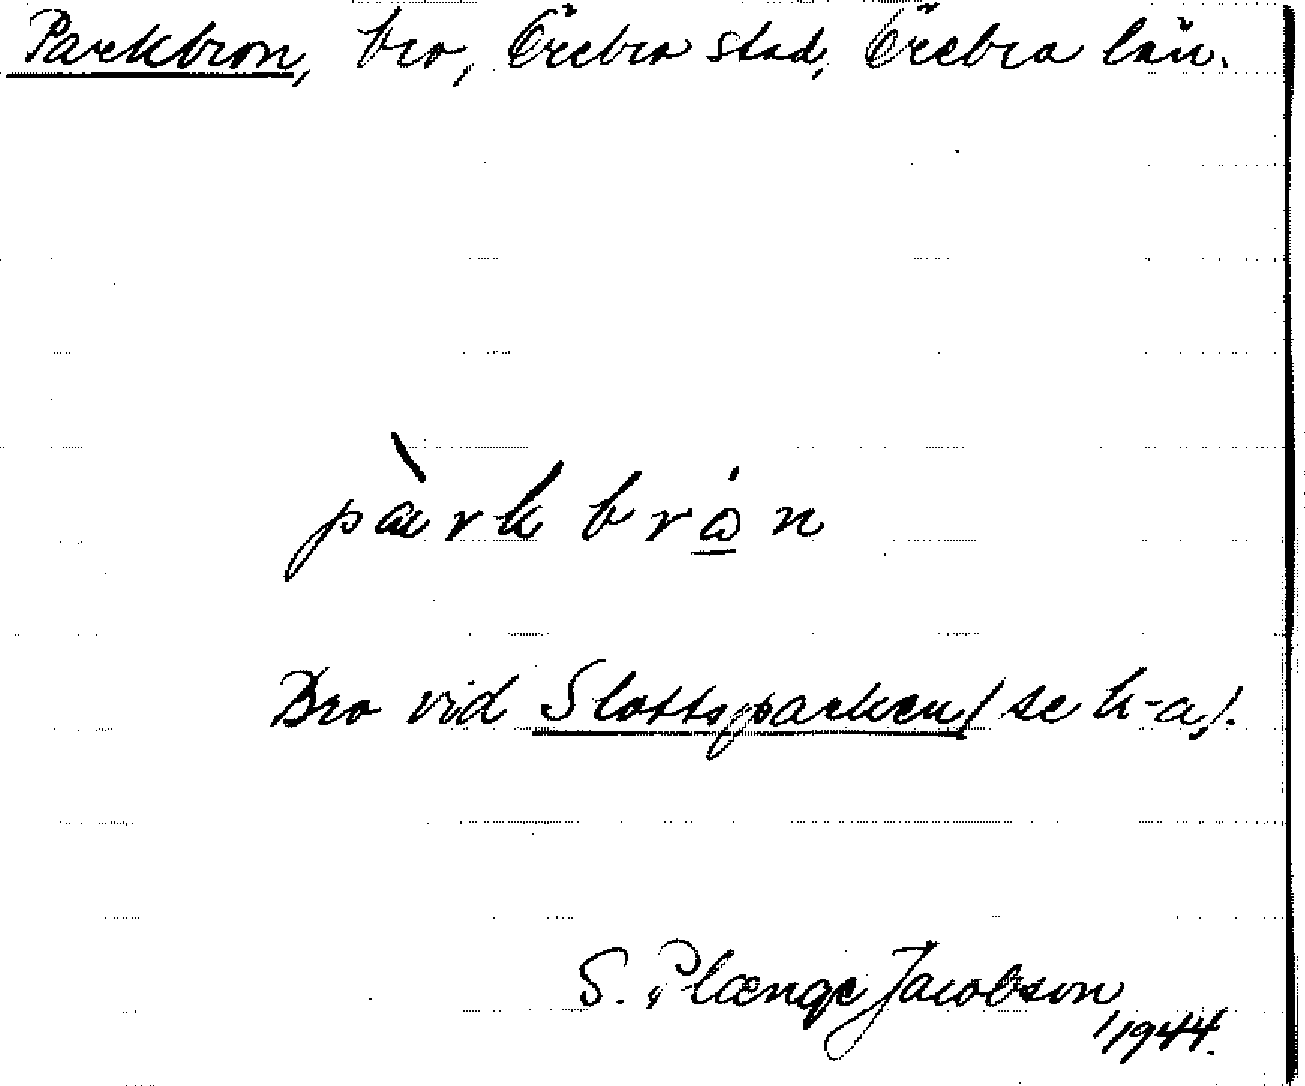 Parkbron, bro, Örebro stad, Örebro län.
pàrk brån
Bro vid Slottsparken (se k-a).
S. Plænge Jacobson, 1944.